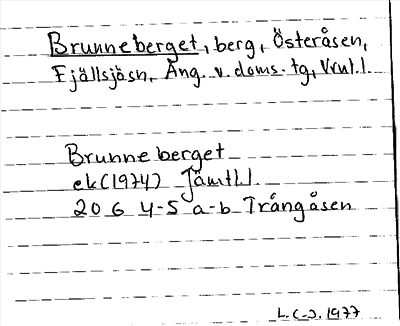 Brunneberget, berg, Österåsen,
Fjällsjösn, Ång. v. doms. tg, Vrml.l.
Brunneberget
ek (1974) Jämtl.l.
20 G 4-5 a-b Trångåsen
L.C-J. 1977